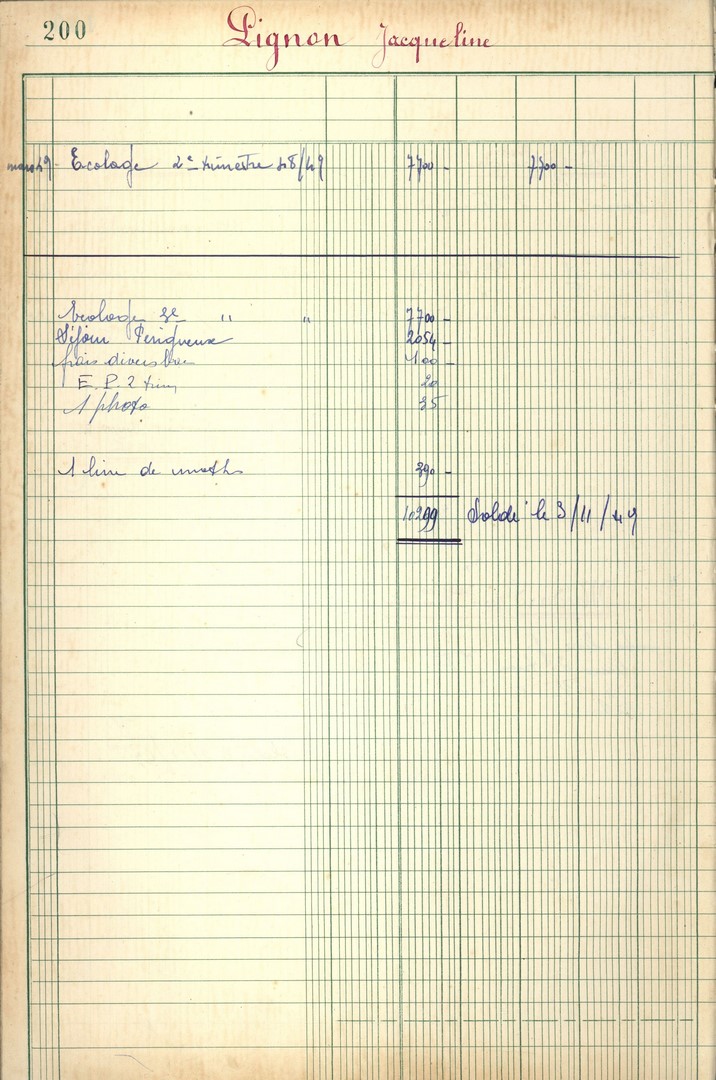 200 Pignon Jacqueline
mars 49 - Ecolage 2e trimestre 48/49 7700 - 7700 -
Ecolage 3e " " 7700 -
Séjour Périgueux 2054 -
frais divers bac 100 -
E. P. 2 trim 20
1 photo 35
1 livre de maths 390 -
10299 Soldé le 3/11/49